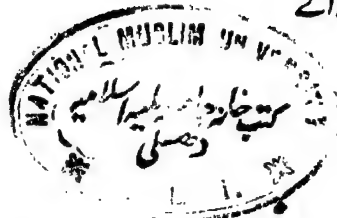 NATIONAL MUSLIM UNIVERSITY
کتب خانہ جامعہ ملیہ اسلامیہ
دہلی